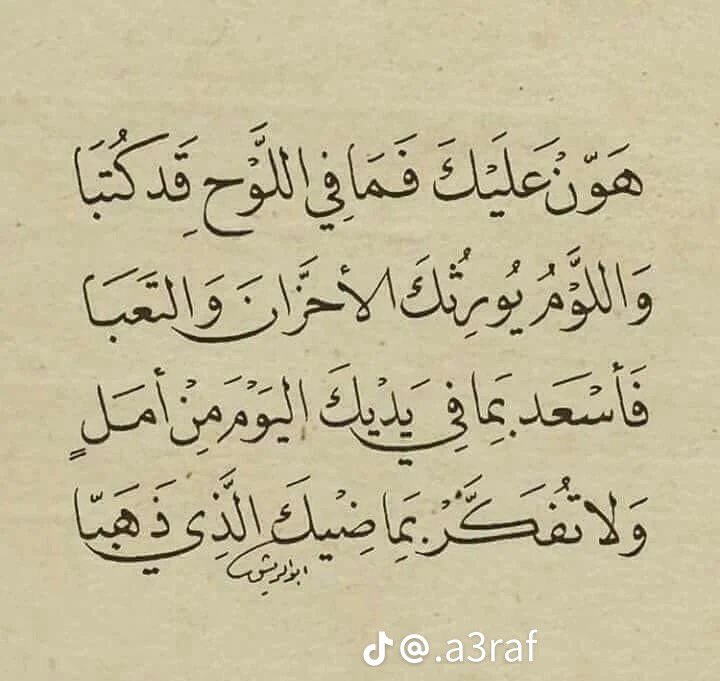 هَوّنْ عَلَيْكَ فَمَا فِي اللَّوْحِ قَد كُتبَا
وَاللَّوْمُ يُورِثُكَ الأحزَّانَ وَالتعَبَا
فَأسْعَد بمِا فِي يَدْيكَ اليَوْمَ مِنْ أمَلٍ
وَلا تُفَكَّرْ بمِا ضِيْكَ الَّذِي ذَهَبّا
ابوالريش
@.a3raf